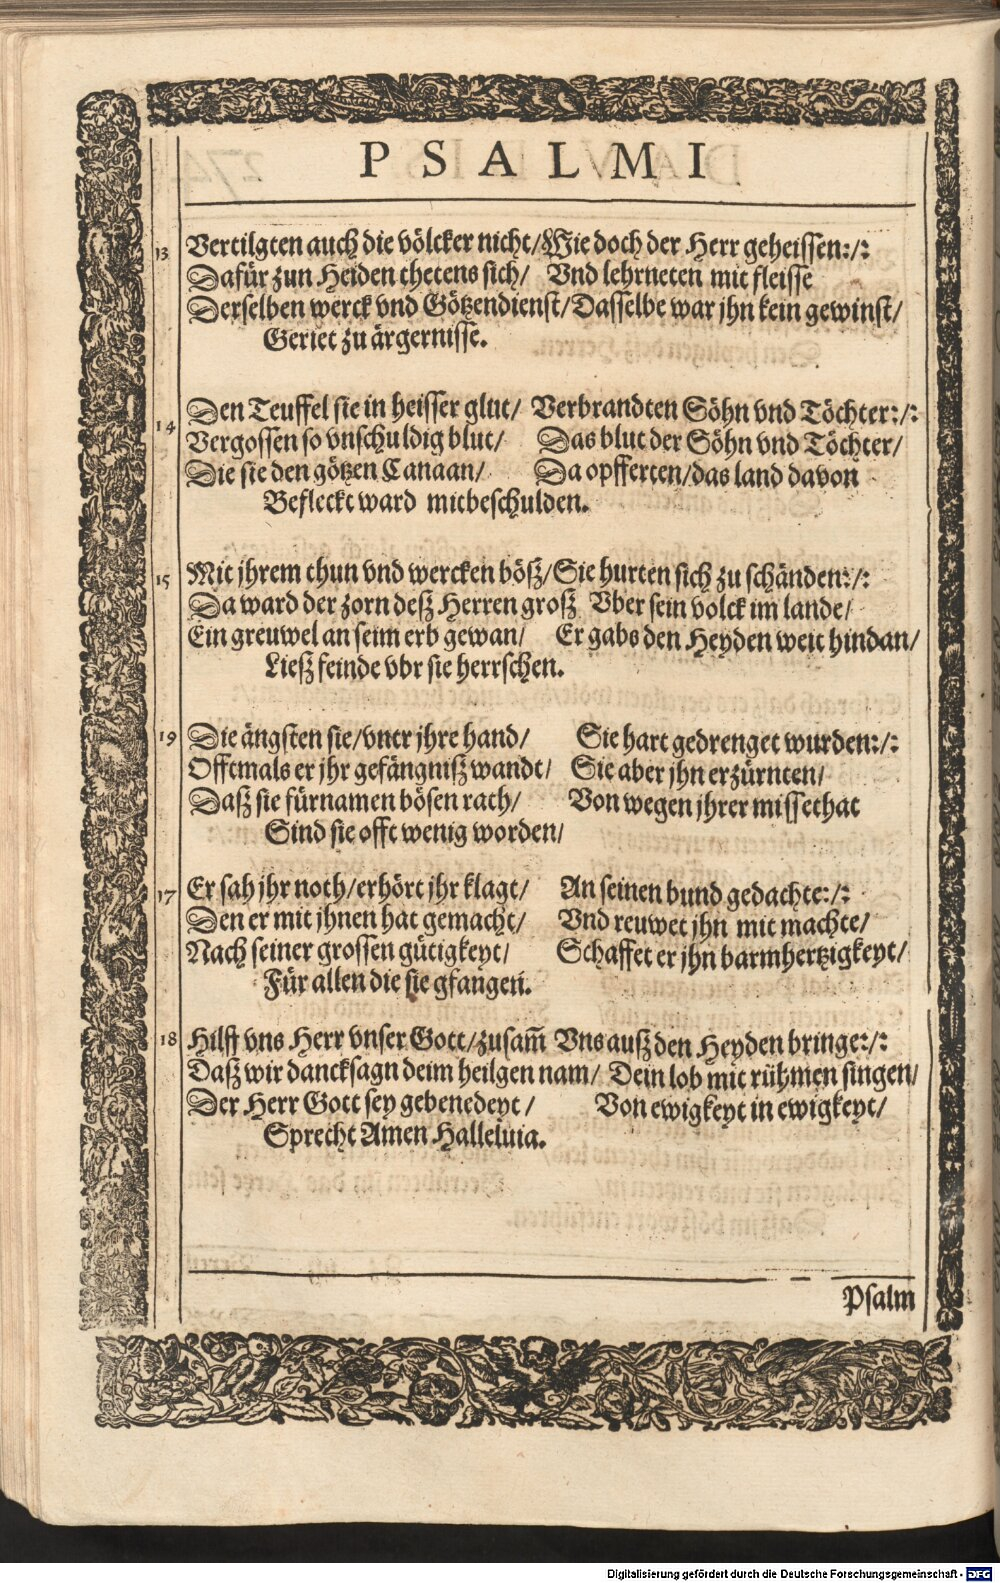 PSALMI
13 Vertilgten auch die völcker nicht/ Wie doch der Herr geheissen:/:
Dafür zun Heiden thetens sich/ Vnd lehrneten mit fleisse
Derselben werck vnd Götzendienst/ Dasselbe war jhn kein gewinst/
Geriet zu ärgernisse.
14 Den Teuffel sie in heisser glut/ Verbrandten Söhn vnd Töchter:/:
Vergossen so vnschuldig blut/ Das blut der Söhn vnd Töchter/
Die sie den götzen Canaan/ Da opfferten/ das land davon
Befleckt ward mitbeschulden.
15 Mit jhrem thun vnd wercken böß/ Sie hurten sich zu schänden:/:
Da ward der zorn deß Herren groß Vber sein volck im lande/
Ein greuwel an seim erb gewan/ Er gabs den Heyden weit hindan/
Ließ feinde vbr sie herrschen.
19 Die ängsten sie/ vntr jhre hand/ Sie hart gedrenget wurden:/:
Offtmals er jhr gefängniß wandt/ Sie aber jhn erzürnten/
Daß sie fürnamen bösen rath/ Von wegen jhrer missethat
Sind sie offt wenig worden/
17 Er sah jhr noth/ erhört jhr klagt/ An seinen bund gedachte:/:
Den er mit jhnen hat gemacht/ Vnd reuwet jhn mit machte/
Nach seiner grossen gütigkeyt/ Schaffet er jhn barmhertzigkeyt/
Für allen die sie gfangen.
18 Hilff vns Herr vnser Gott/ zusam̃ Vns auß den Heyden bringe:/:
Daß wir dancksagn deim heilgen nam/ Dein lob mit rühmen singen/
Der Herr Gott sey gebenedeyt/ Von ewigkeyt in ewigkeyt/
Sprecht Amen Halleluia.
Psalm
Digitalisierung gefördert durch die Deutsche Forschungsgemeinschaft - DFG